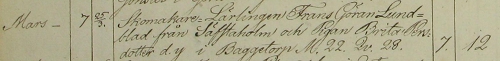 Mars — 7 25/3. Skomakare-Lärlingen Frans Göran Lund-
blad från Säfstaholm och Pigan Brita Pers-
dotter d.y i Baggetorp M. 22. Qv. 28. 7. 12